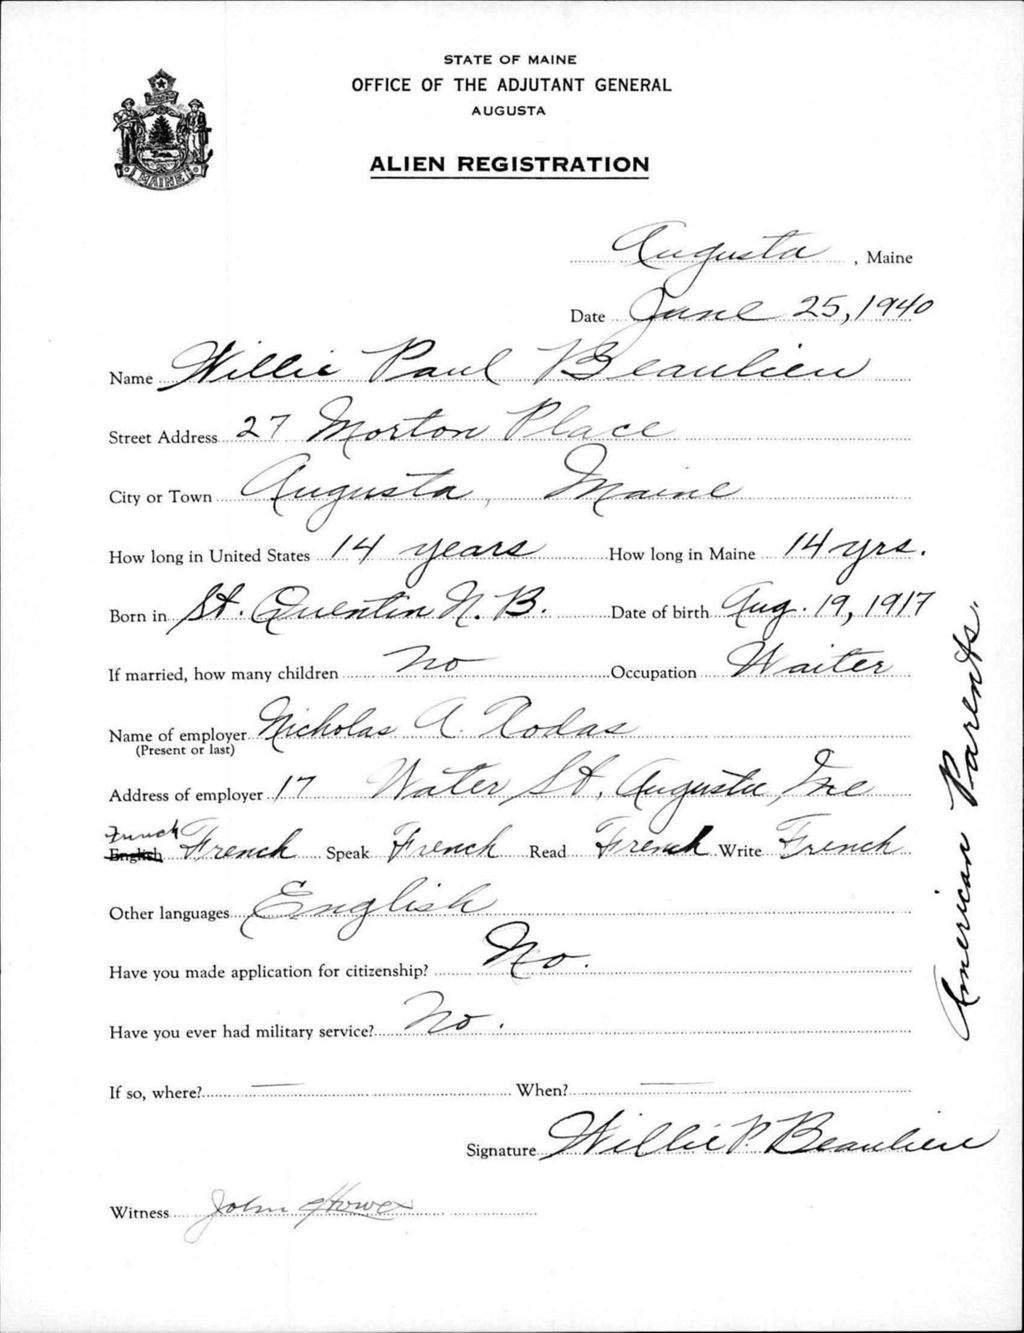 STATE OF MAINE
OFFICE OF THE ADJUTANT GENERAL
AUGUSTA
ALIEN REGISTRATION
MAINE
Augusta, Maine
Date June 25, 1940
Name Willie Paul Beaulieu
Street Address 27 Morton Place
City or Town Augusta, Maine
How long in United States 14 years How long in Maine 14 yrs.
Born in St. Quentin N. B. Date of birth Aug. 19, 1917
If married, how many children no Occupation Waiter
Name of employer Nicholas A. Rodas
(Present or last)
Address of employer 17 Water St, Augusta, Me
French
English French Speak French Read French Write French
Other languages English
Have you made application for citizenship? No.
Have you ever had military service? No.
If so, where? — When? —
Signature Willie P. Beaulieu
Witness John Howe
American Parents.